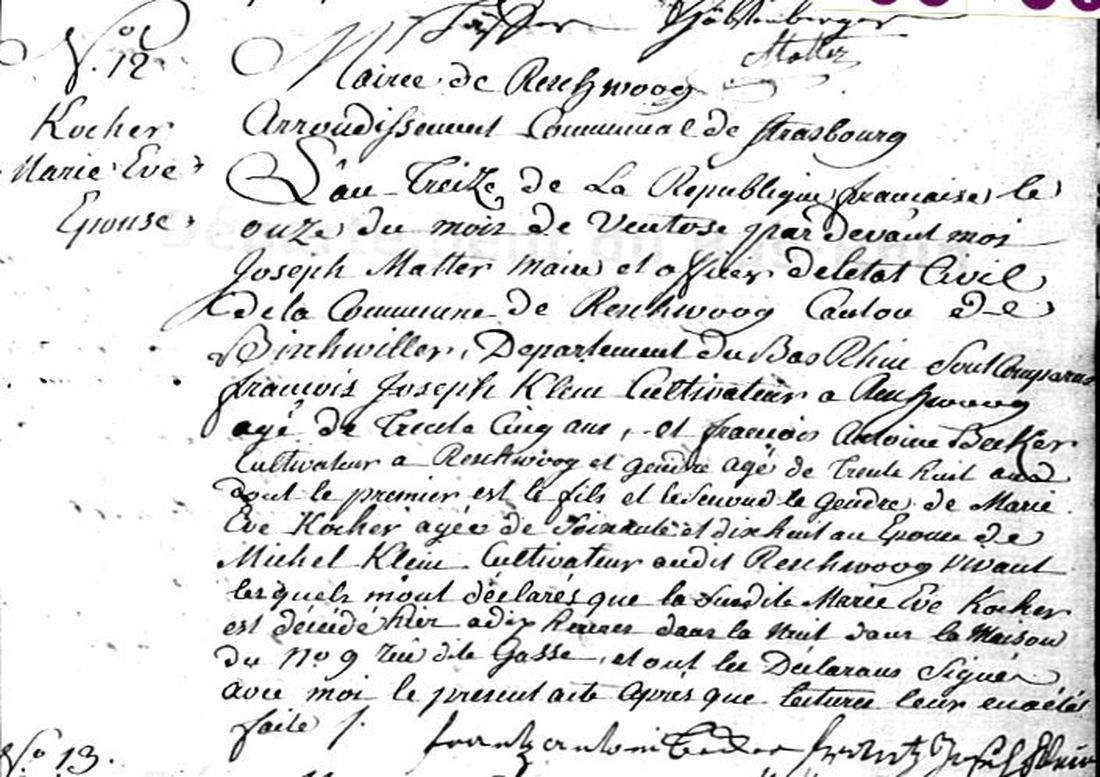 Matter
N.º 12
Kocher
Marie Eve
Epouse
Mairie de Reschwoog
Arrondissement Communal de Strasbourg
L'an Treize de La Republique francaise le
onze du mois de Ventose par devant moi
Joseph Matter maire et officier de letat Civil
de la Commune de Reschwoog Canton de
Bischwiller, Departement du Bas Rhin Sont Comparus
francois Joseph Klein Cultivateur a Reschwoog
agé de Trente Cinq ans, et francois Antoine Becker
Cultivateur a Reschwoog et gendre agé de Trente huit ans
dont le premier est le fils et le Second le gendre de Marie
Eve Kocher agée de Soixante et dix huit an Epouse de
Michel Klein Cultivateur audit Reschwoog Vivant
lesquels m'ont déclarés que la Susdite Marie Eve Kocher
est décédé hier a dix heures dans la Nuit dans la Maison
du Nº 9 rüe dite Gasse, et ont les Déclarans Signés
avec moi le present acte Après que lecture leur en a étés
faite /.
frantz antoni Becker frantz Josef Klein
Nº 13.